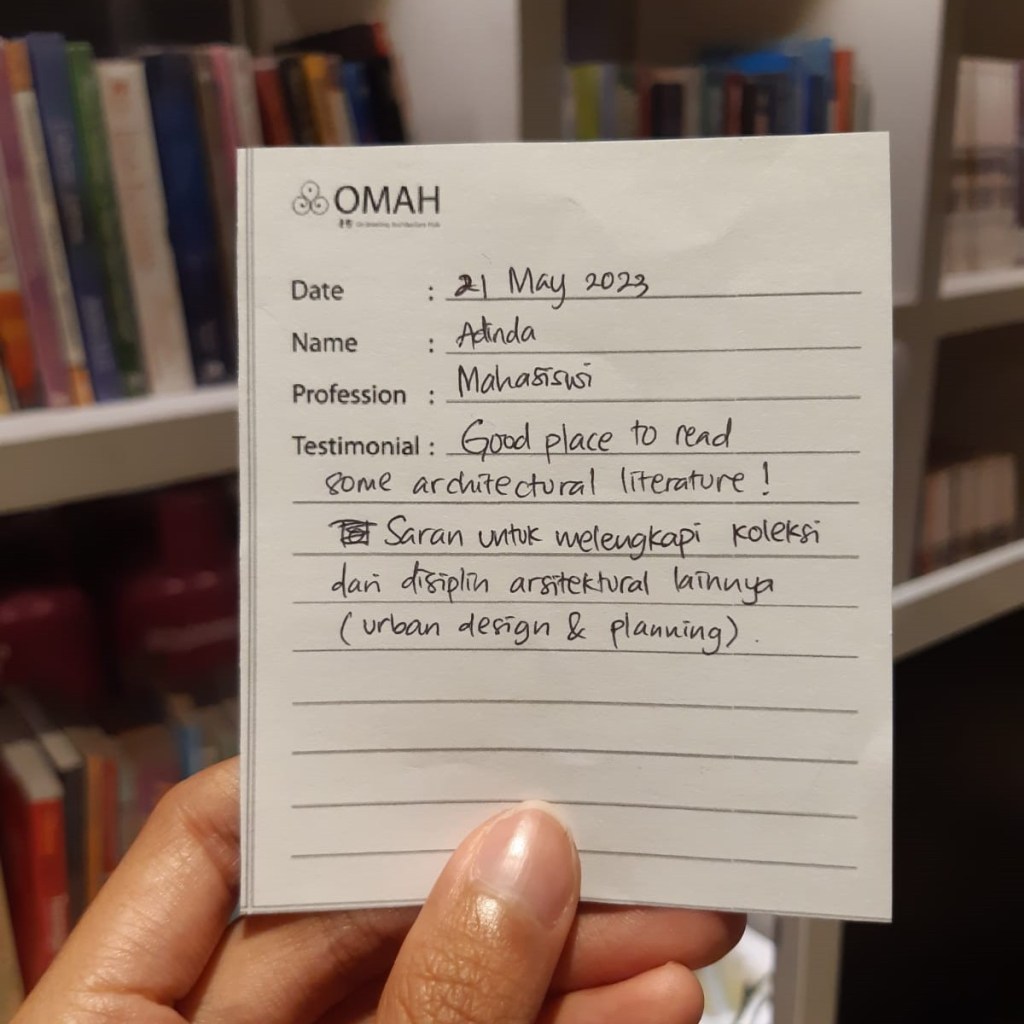 OMAH
Date : 21 May 2023
Name : Adinda
Profession : Mahasiswi
Testimonial : Good place to read
some architectural literature !
Saran untuk melengkapi koleksi
dari disiplin arsitektural lainnya
(urban design & planning).